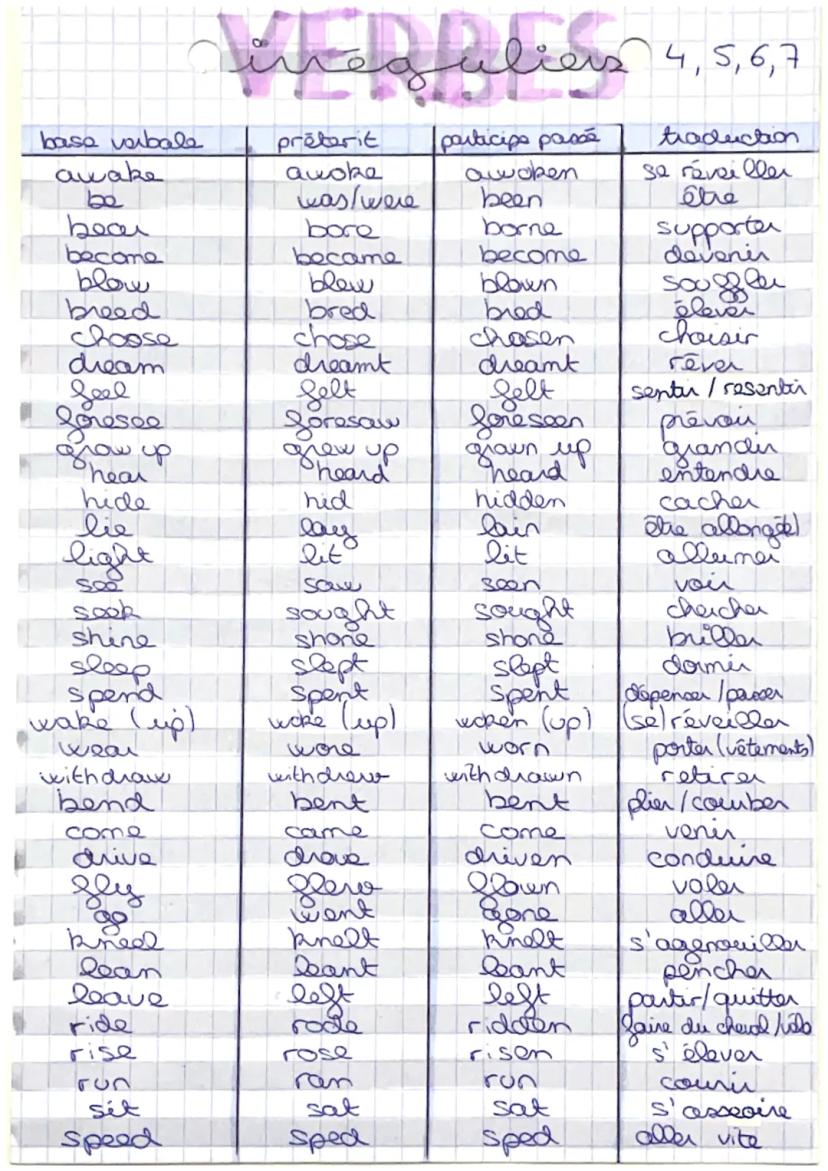 VERBES
irréguliers 4, 5, 6, 7
base verbale prétérit participe passé traduction
awake awoke awoken se réveiller
be was/were been être
bear bore borne supporter
become became become devenir
blow blew blown souffler
breed bred bred élever
choose chose chosen choisir
dream dreamt dreamt rêver
feel felt felt sentir / resentir
foresee foresaw foreseen prévoir
grow up grew up grown up grandir
hear heard heard entendre
hide hid hidden cacher
lie lay lain être allongé(e)
light lit lit allumer
see saw seen voir
seek sought sought chercher
shine shone shone briller
sleep slept slept dormir
spend spent spent dépenser / passer
wake (up) woke (up) woken (up) (se) réveiller
wear wore worn porter (vêtements)
withdraw withdrew withdrawn retirer
bend bent bent plier / courber
come came come venir
drive drove driven conduire
fly flew flown voler
go went gone aller
kneel knelt knelt s'agenouiller
lean leant leant pencher
leave left left partir / quitter
ride rode ridden faire du cheval / vélo
rise rose risen s'élever
run ran run courir
sit sat sat s'asseoire
speed sped sped aller vite